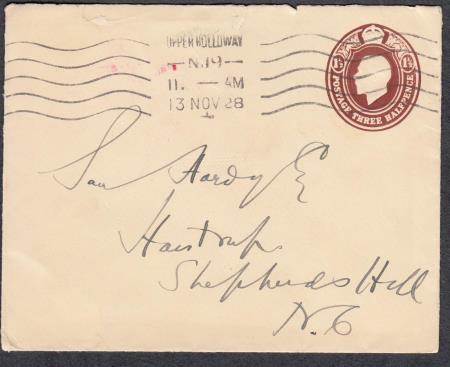 UPPER HOLLOWAY
— N.19 —
11. — AM
13 NOV 28
1½ POSTAGE THREE HALFPENCE 1½
Hardy
Shepherds Hill
N. 6